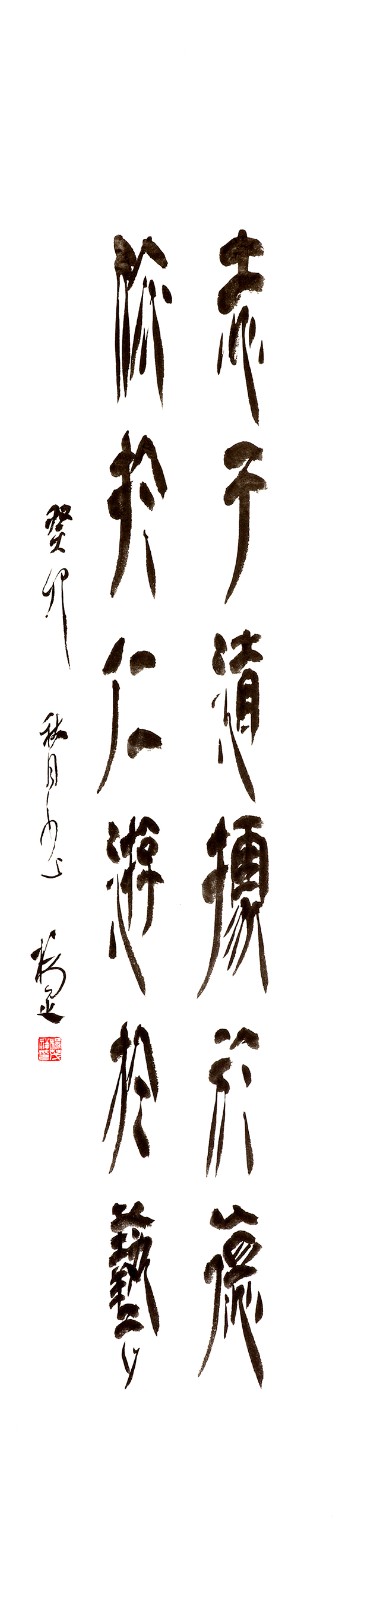 志于道據於德
依於仁游於藝
癸卯秋月